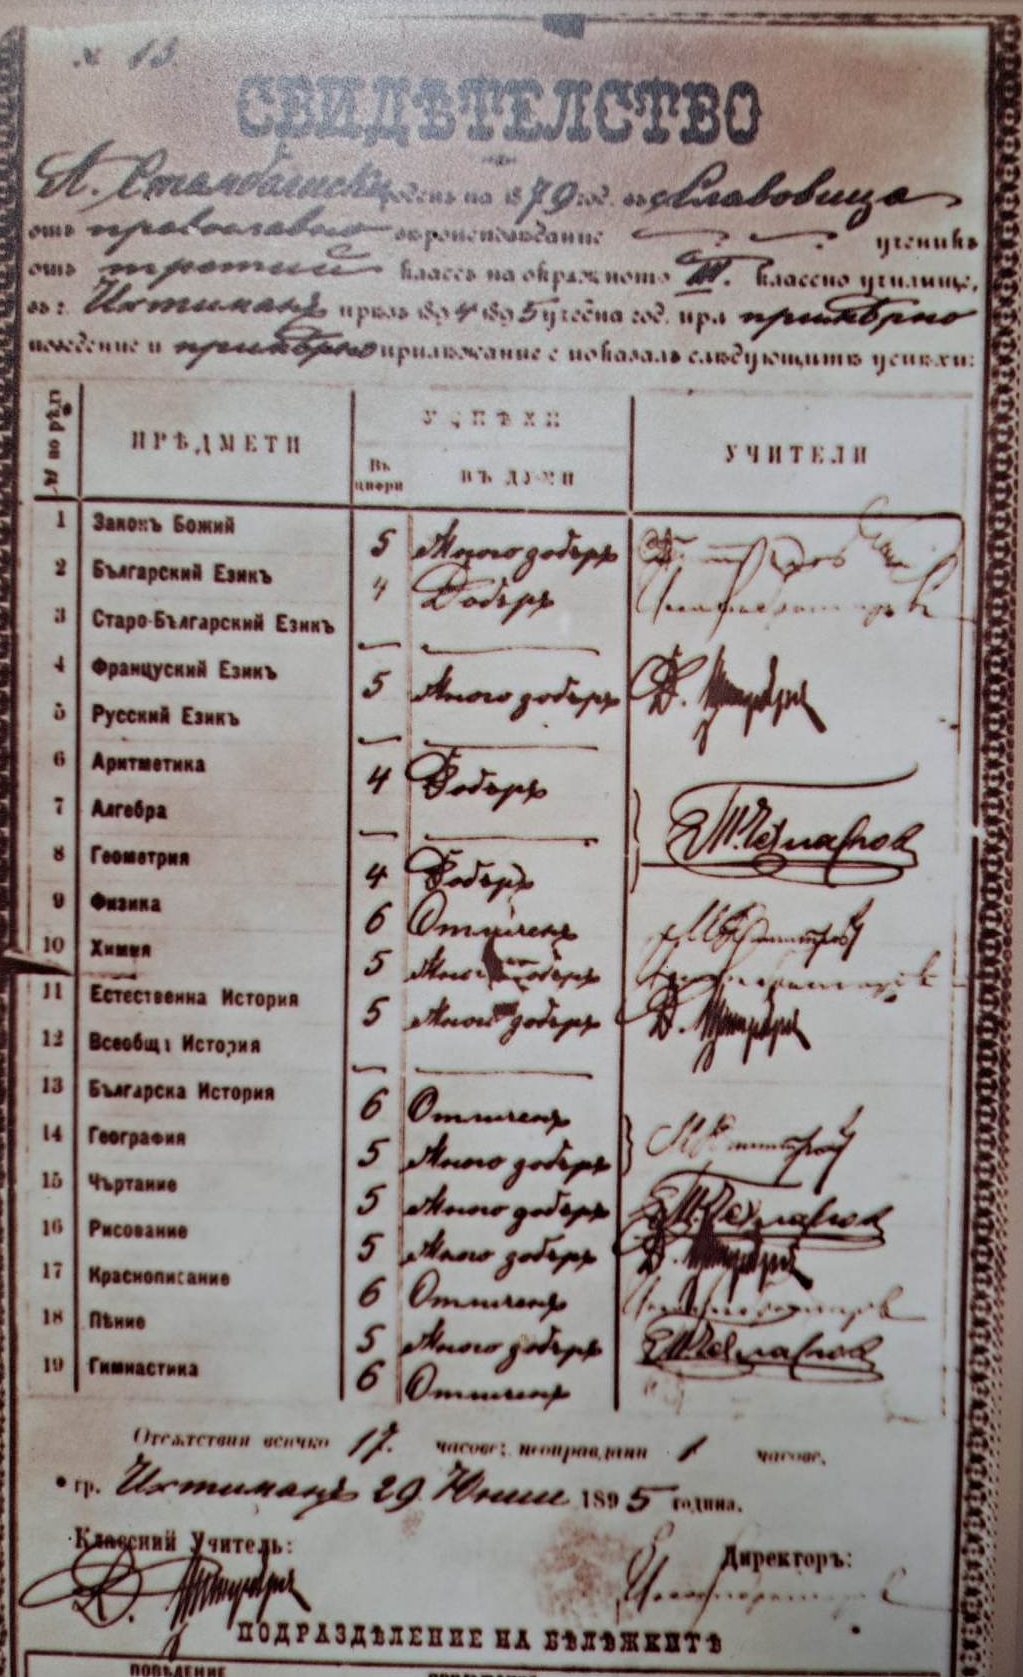 № 13.
СВИДѢТЕЛСТВО
А. Стамболийски роденъ на 1879 год. въ с. Славовица
отъ православно вѣроисповѣдание ученикъ
отъ третий классъ на окрѫжното III. классно училище,
въ г. Ихтиманъ прѣзъ 1894 1895 учебна год. при примѣрно
поведение и примѣрно прилѣжание е показалъ слѣдующитѣ успѣхи:
№ по рѣд ПРѢДМЕТИ УСПѢХИ УЧИТЕЛИ
Въ цифри ВЪ ДУМИ
1 Законъ Божий 5 Много добъръ
2 Български Езикъ 4 Добъръ
3 Старо-Българский Езикъ —
4 Француский Езикъ 5 Много добъръ
5 Русский Езикъ —
6 Аритметика 4 Добъръ
7 Алгебра —
8 Геометрия 4 Добъръ
9 Физика 6 Отличенъ
10 Химия 5 Много добъръ
11 Естественна История 5 Много добъръ
12 Всеобща История —
13 Българска История 6 Отличенъ
14 География 5 Много добъръ
15 Чъртание 5 Много добъръ
16 Рисование 5 Много добъръ
17 Краснописание 6 Отличенъ
18 Пѣние 5 Много добъръ
19 Гимнастика 6 Отличенъ
Отсѫтствия всичко 17. часове: неоправдани 1 часове.
гр. Ихтиманъ 29 Юний 1895 година.
Классний Учитель: Директоръ:
ПОДРАЗДѢЛЕНИЕ НА БѢЛѢЖКИТѢ
ПОВѢДЕНИЕ